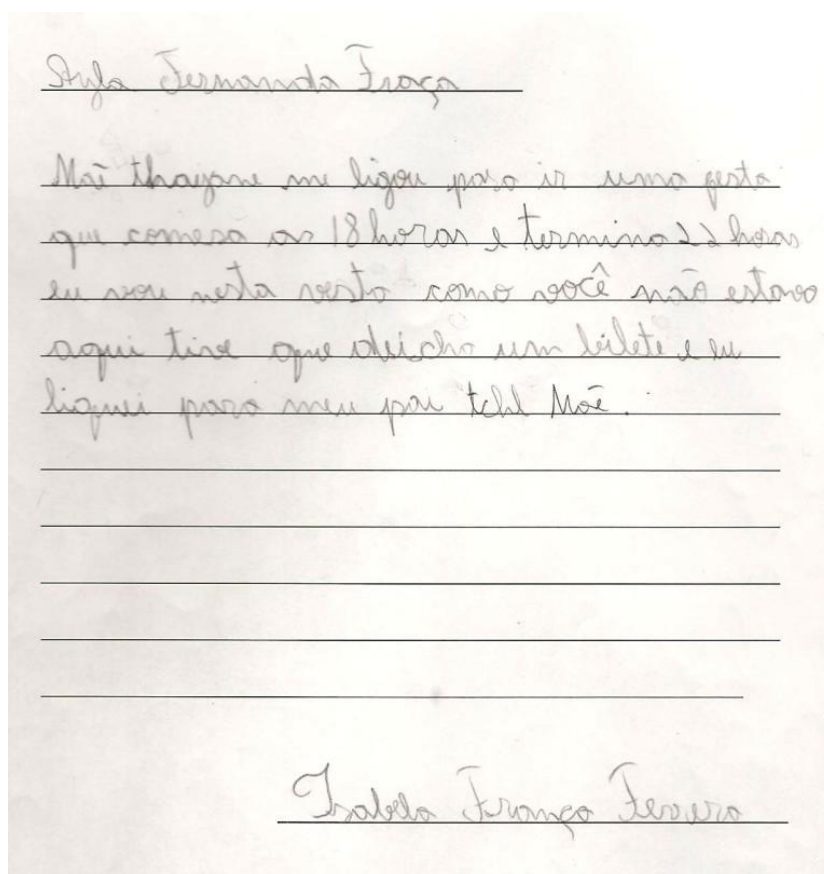 Fernanda Fraça
Mãe thayane me ligou para ir uma festa
que comesa as 18 horas e termina 22 horas
eu vou nesta vesta como você não estava
aqui tive que deicha um bilete e eu
liguei para meu pai Mãe.
Isabela França Ferrera